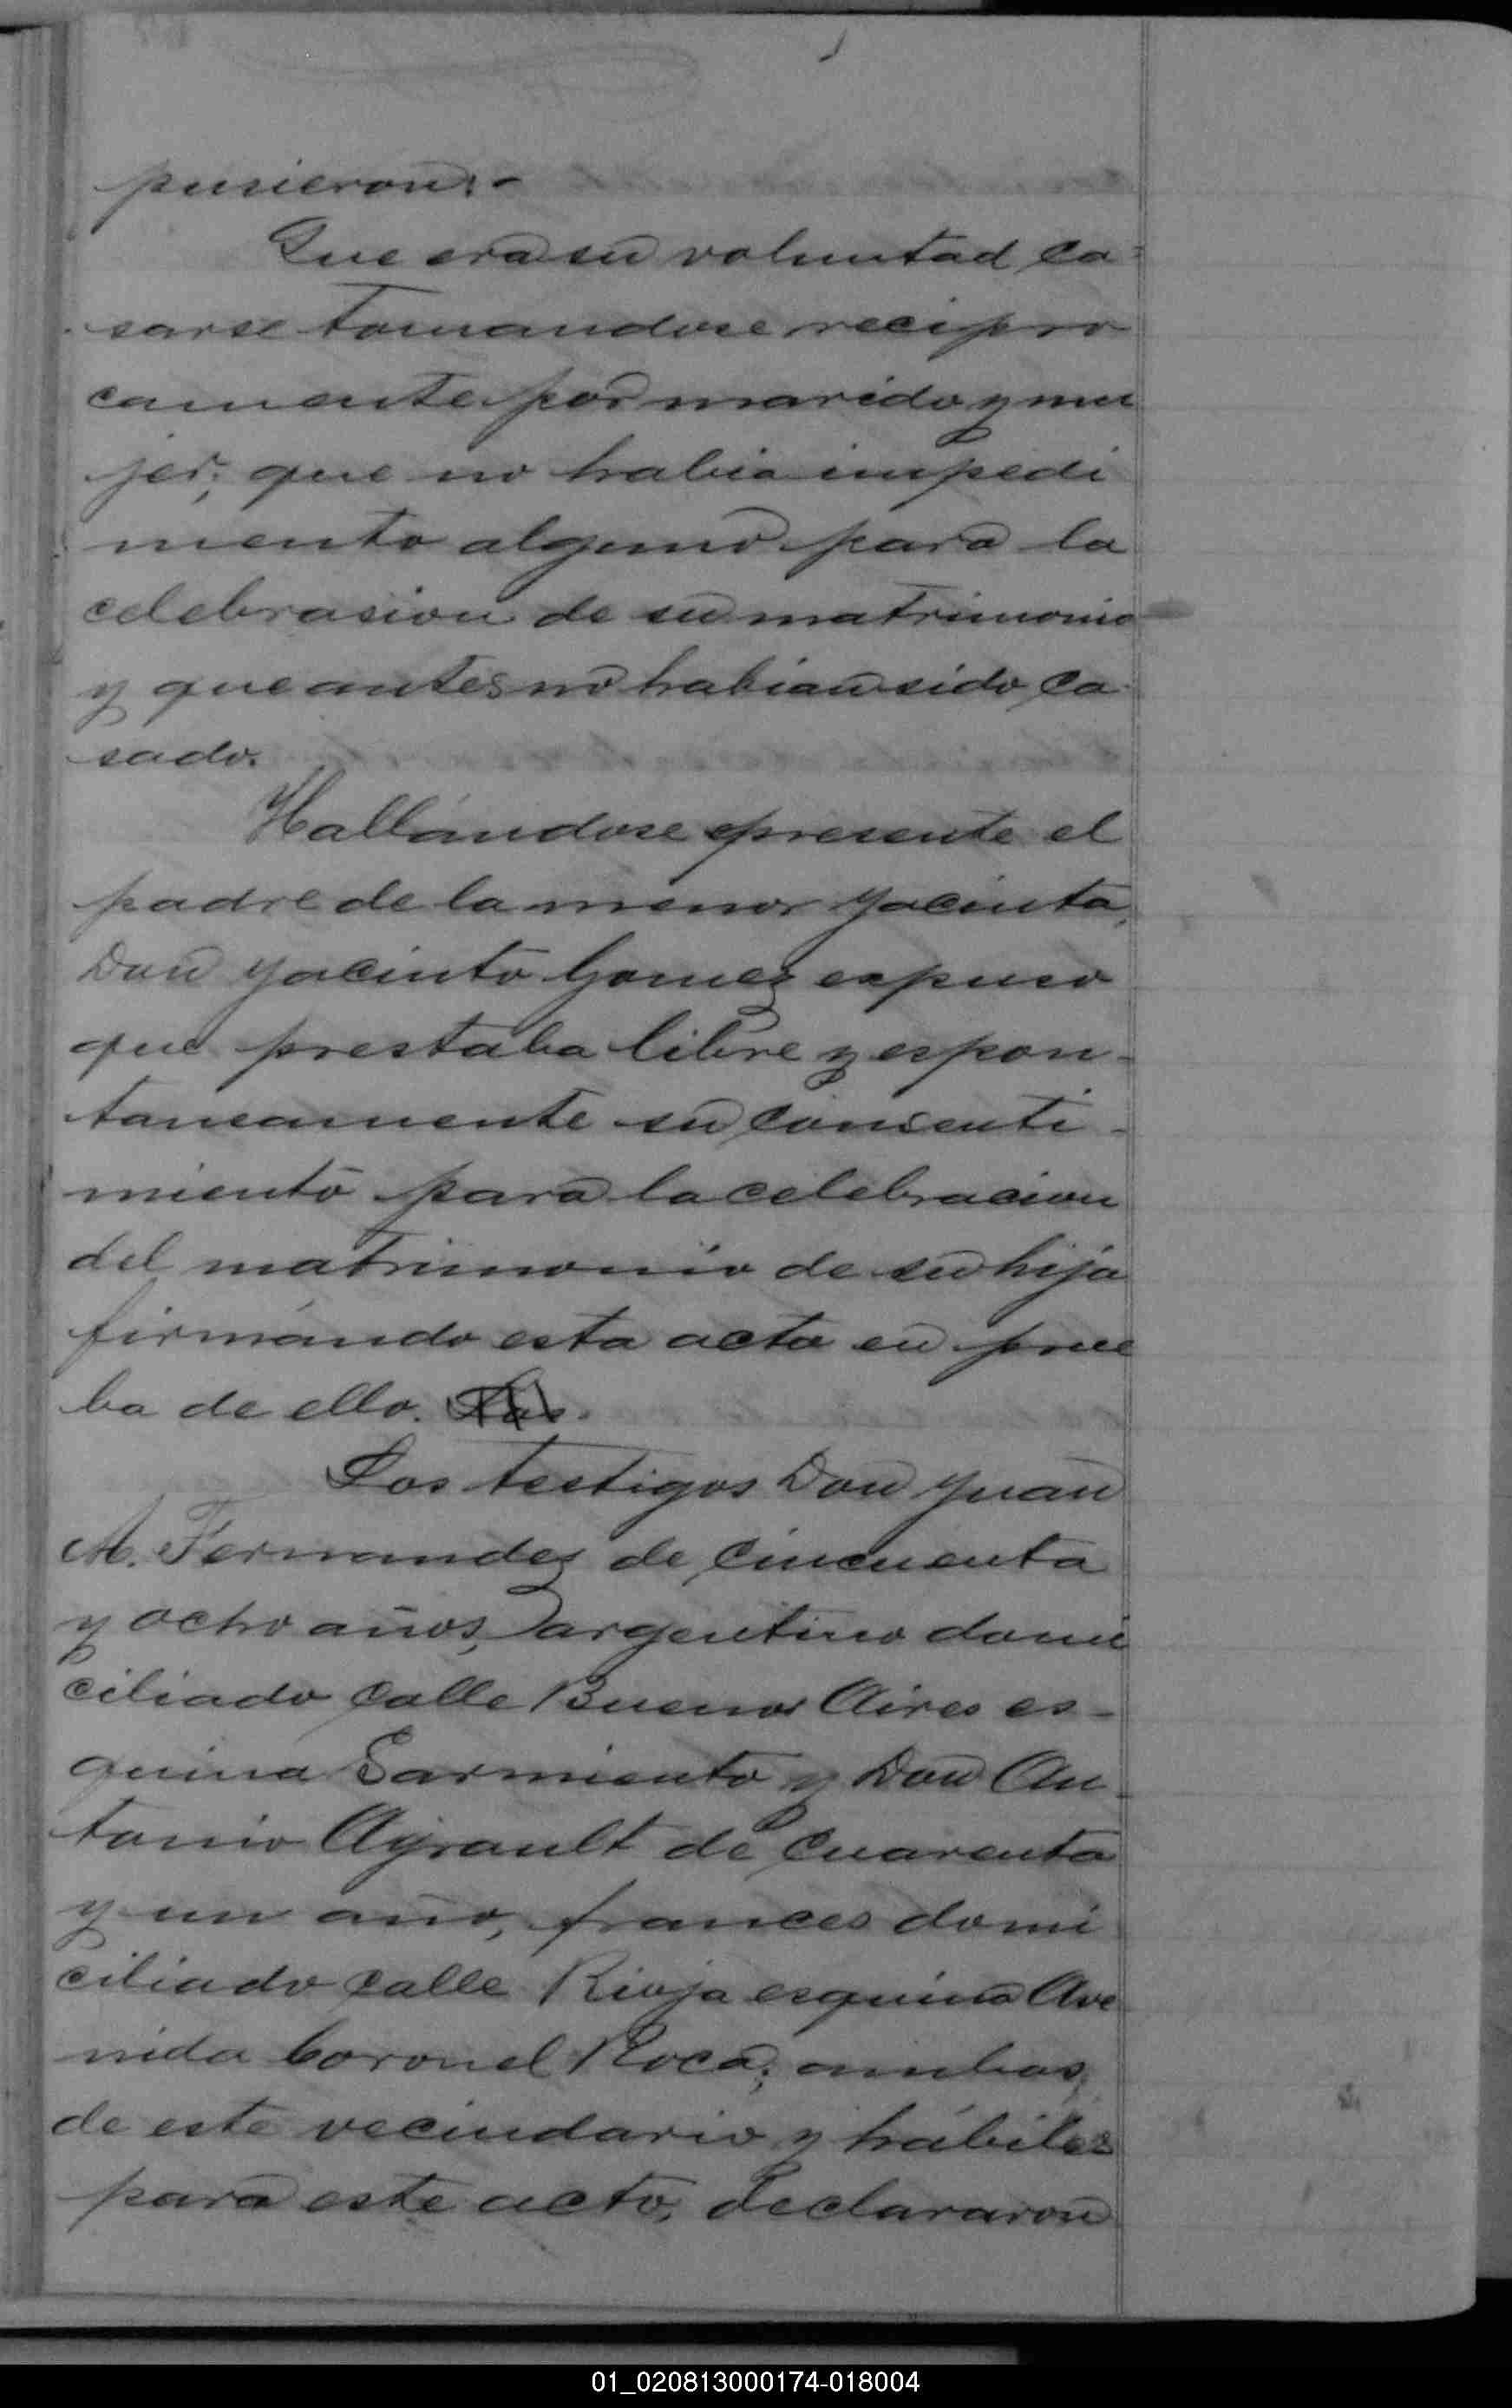 pusieron:-
Que era su voluntad ca-
sarse tomandose recipro
camente por marido y mu
jer; que no habia impedi
mento alguno para la
celebrasion de su matrimonio
y que antes no habian sido ca-
sado.
Hallándose presente el
padre de la menor Yacinta,
Don Yacinto Gomez expuso
que prestaba libre y espon-
taneamente su consenti-
miento para la celebracion
del matrimonio de su hija
firmándo esta acta en prue
ba de ello. Los
Los testigos Don Juan
A. Fernandez de cincuenta
y ocho años, argentino domi
ciliado calle Buenos Aires es-
quina Sarmiento y Don An-
tonio Ayrault de cuarenta
y un año, frances domi
ciliado calle Rioja esquina Ave
nida Coronel Roca; ambos,
de este vecindario y hábiles
para este acto, declararon
01_020813000174-018004